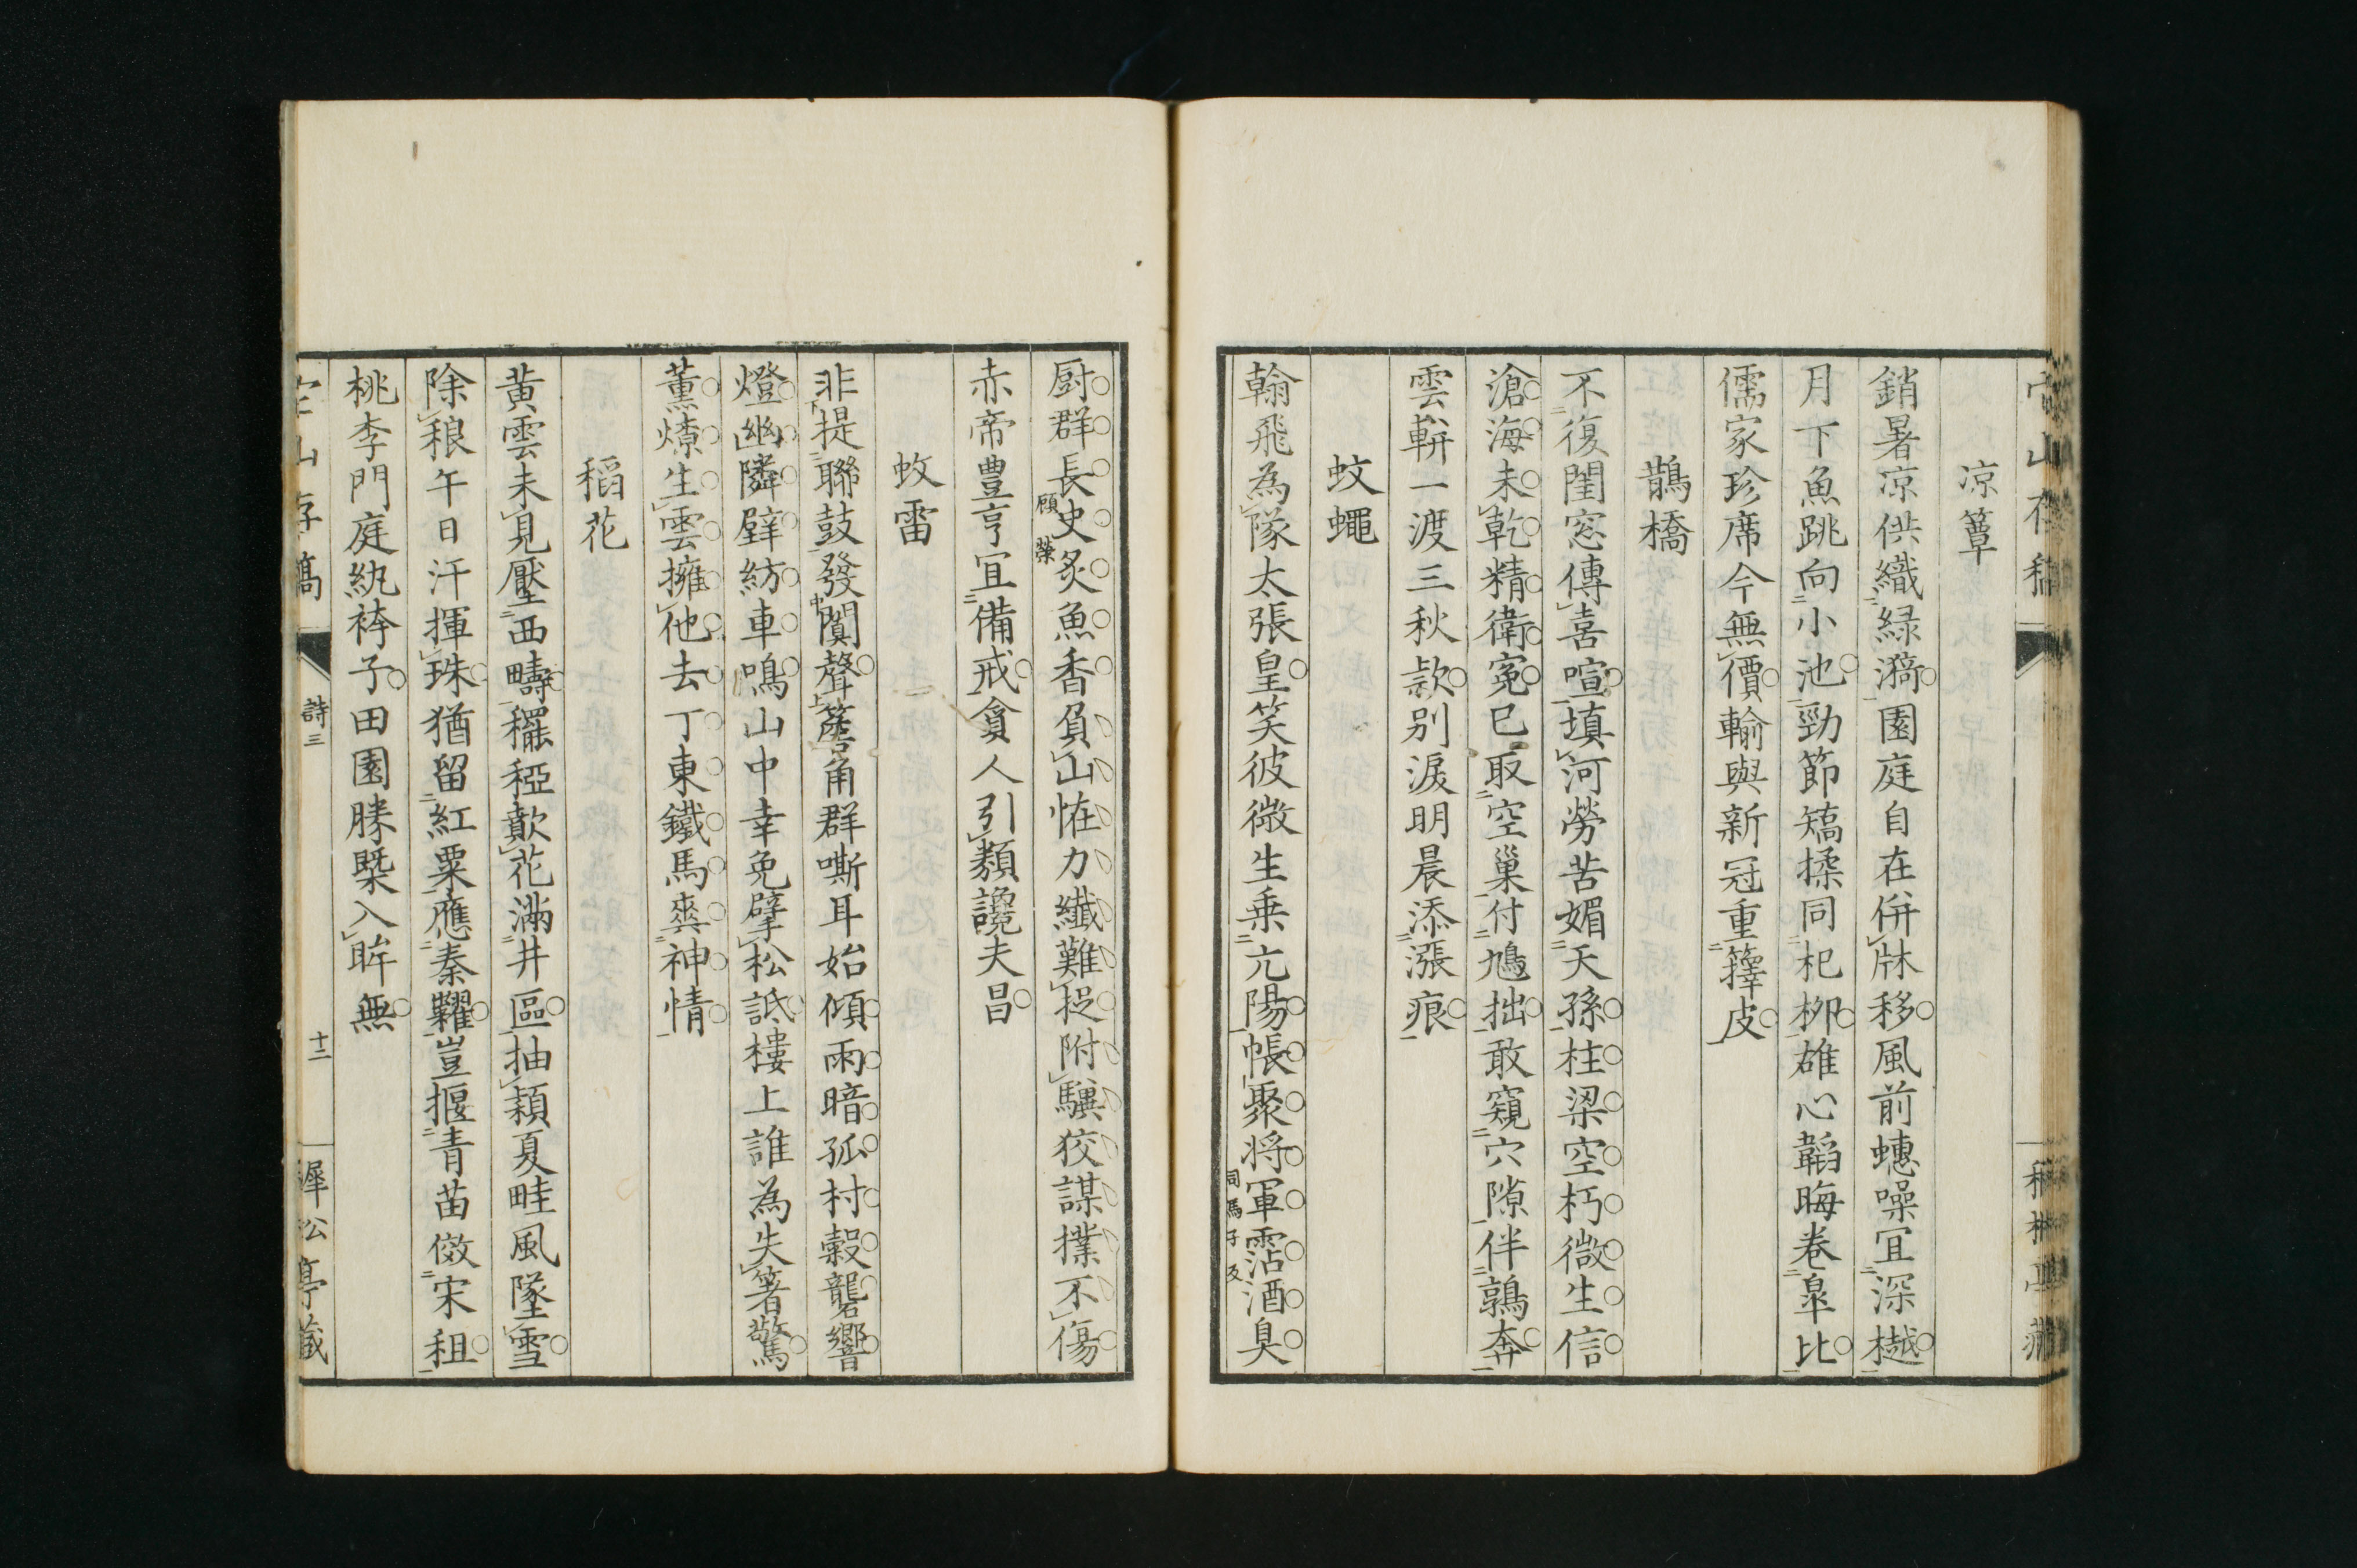 凉簟
銷暑凉供織緑漪園庭自在併牀移風前蟪噪宜深樾
月下魚跳向小池勁節矯揉同杞柳雄心韜晦卷皐比
儒家珍席今無價輸與新冠重籜皮
鵲橋
不復閨窓傳喜喧填河勞苦媚天孫柱梁空朽微生信
滄海未乾精衛冤已取空巢付鳩拙敢窺穴隙伴鶉奔
雲輧一渡三秋歘别淚明晨添漲痕
蚊蠅
翰飛為隊太張皇笑彼微生乗亢陽帳聚将軍霑酒臭
司馬子反
厨群長史炙魚香負山恠力纖難捉附驥狡謀撲不傷
顧榮
赤帝豊亨宜備戒貪人引類讒夫昌
蚊雷
非提聯鼓發闐聲簷角群嘶耳始傾雨暗孤村轂礱響
燈幽隣壁紡車鳴山中幸免擘松詆樓上誰為失箸驚
薫燎生雲擁他去丁東鐵馬爽神情
稻花
黄雲未見壓西疇䆉稏歕花滿井區抽穎夏畦風墜雪
除稂午日汗揮珠猶留紅粟應秦糶豈揠青苗傚宋租
桃李門庭紈袴子田園勝槩入眸無
山存稿
詩三
十二
犀松亭藏